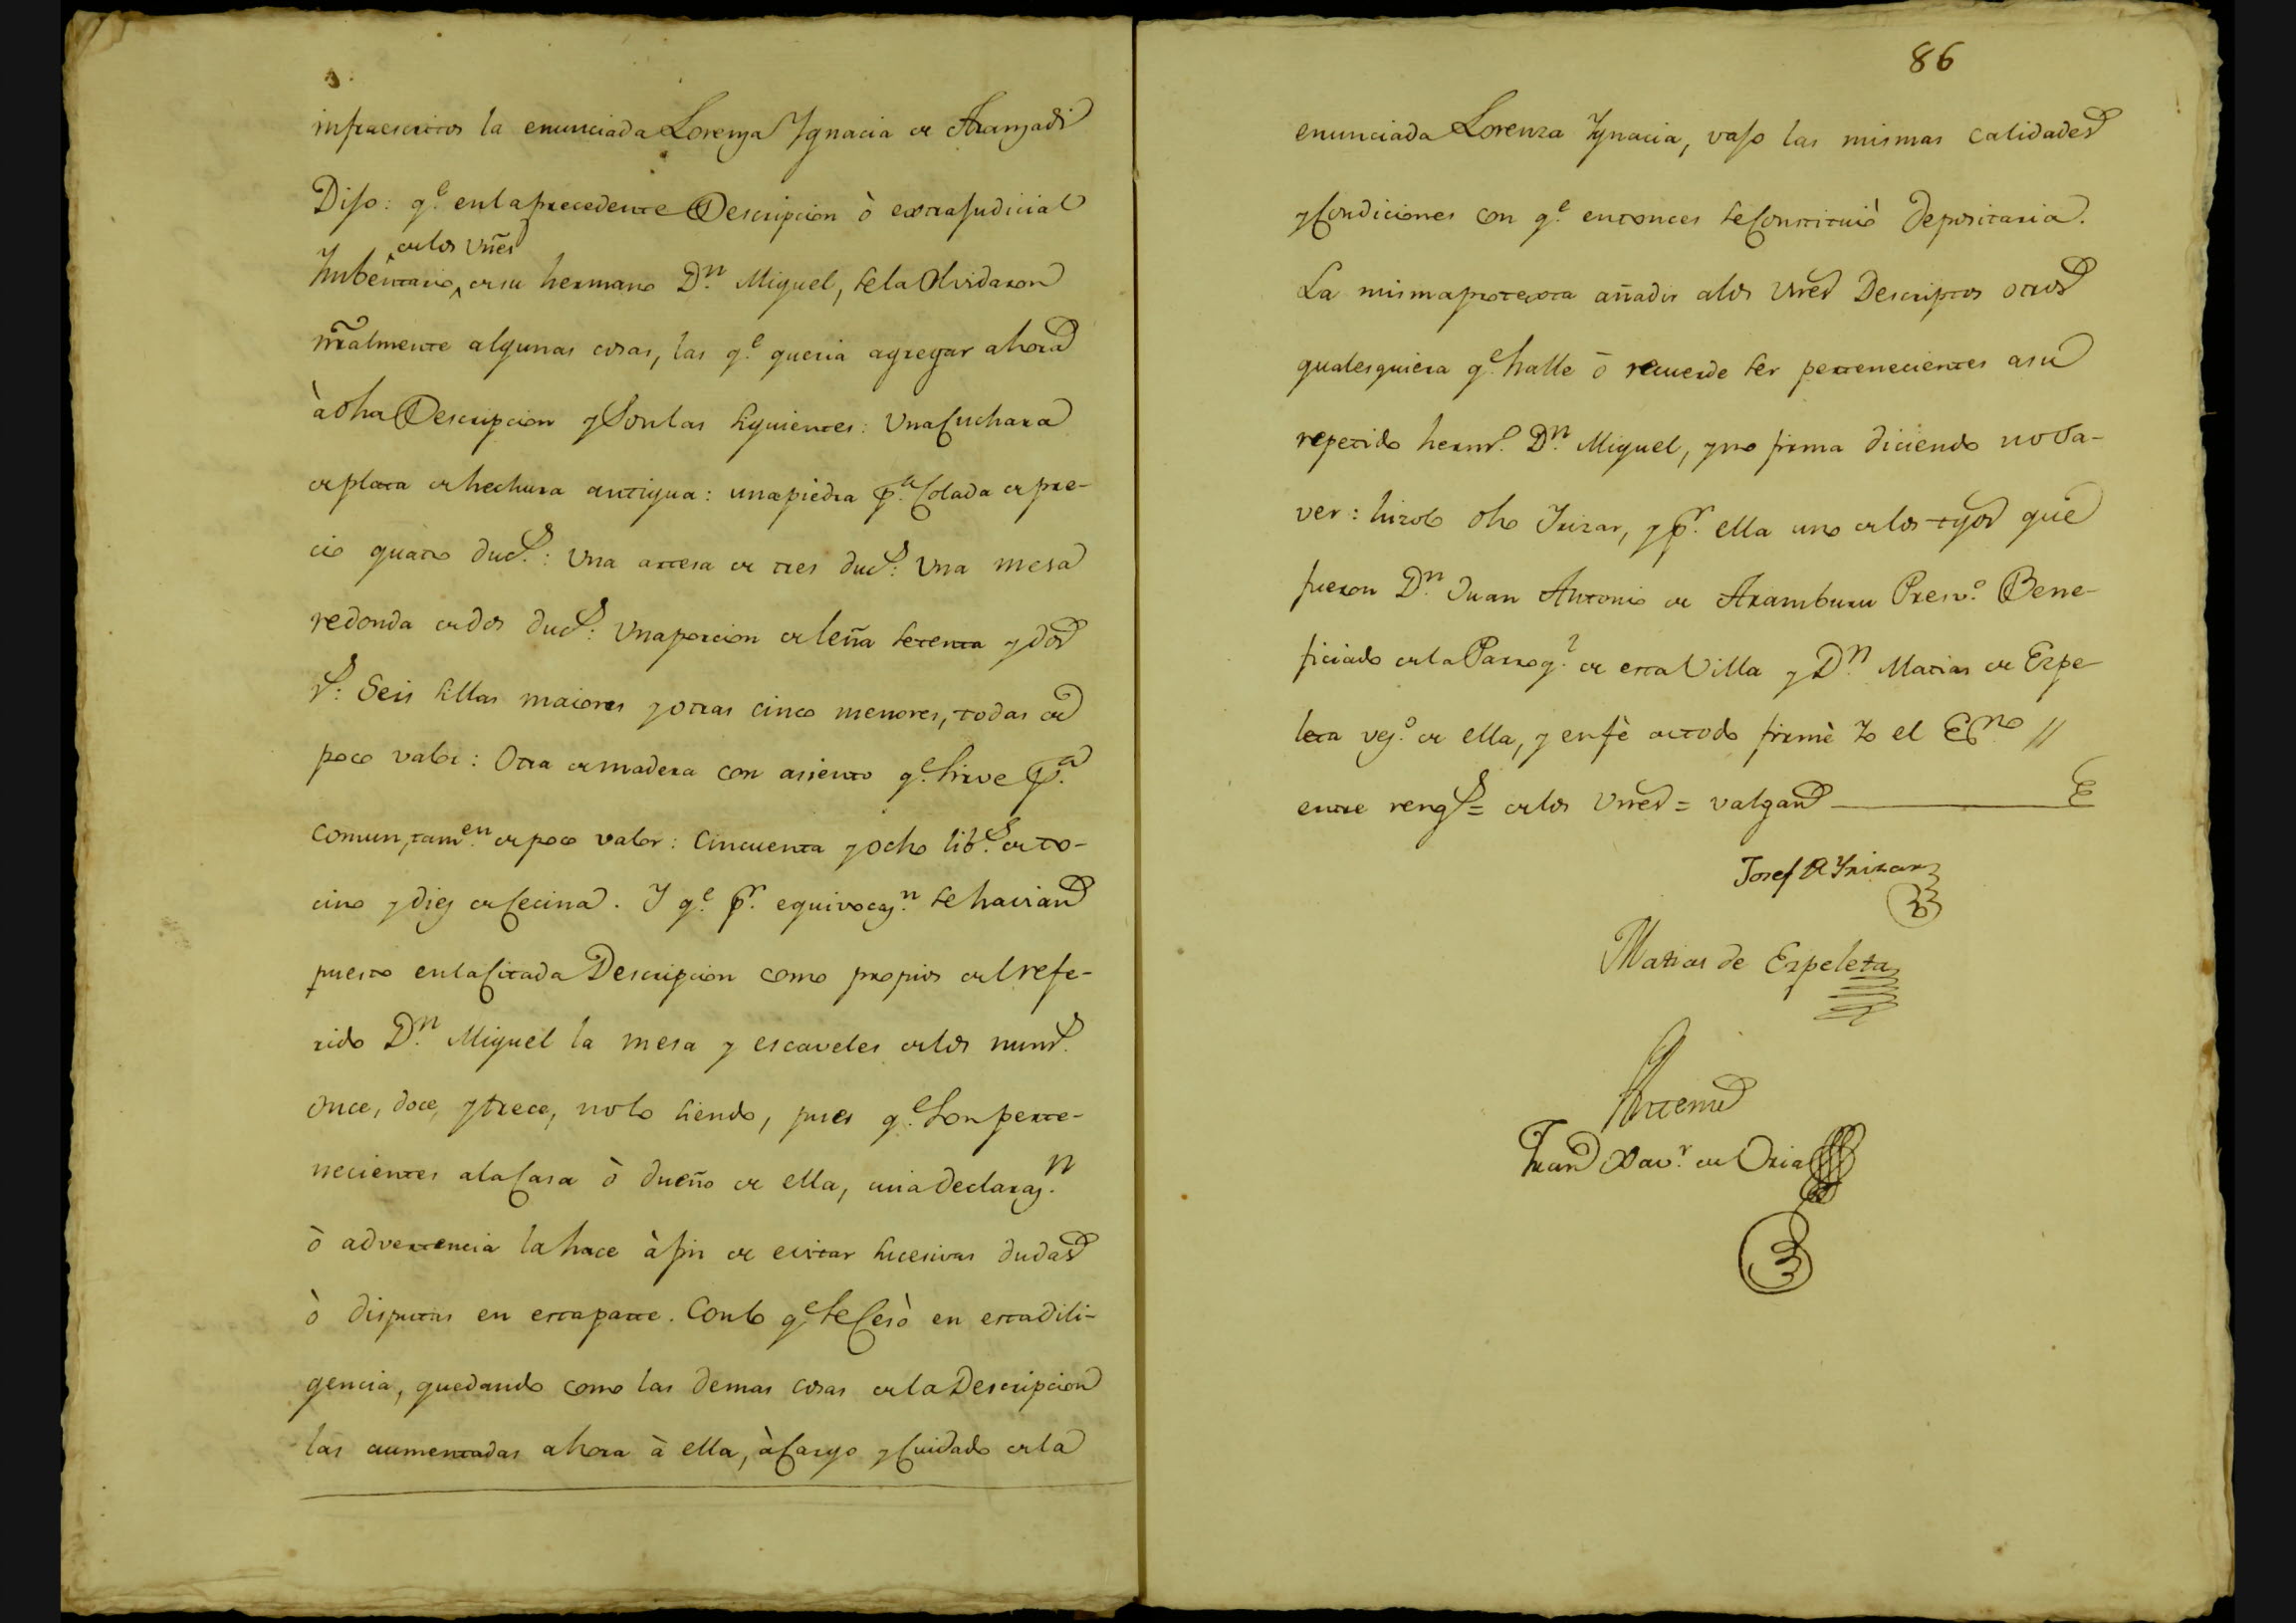 infraescritos la enunciada Lorenza Ygnacia de Aranzadi
Dijo: q.e en la precedente Descripcion ò extrajudicial
de los vñes
Ymbentario, de su hermano D.n Miguel, se la olvidaron
nrãlmente algunas cosas, las q.e queria agregar ahora
à dha Descripcion y son las siguientes: Una Cuchara
de plata de hechura antigua: una piedra p.a Colada de pre-
cio quatro duc.s: Una artesa de tres duc.s: Una mesa
redonda de dos duc.s: Una porcion de leña setenta y dos
r.s: Seis sillas maiores y otras cinco menores, todas de
poco valor: Otra de madera con asiento q.e sirve p.a
comun, tam.en de poco valor: Cincuenta y ocho lib.s de to-
cino y diez de Cecina. Y q.e p.r equivocaz.n se havian
puesto en la Citada Descripcion como propios del refe-
rido D.n Miguel la mesa y escaveles de los num.s
once, doce, y trece, no lo siendo, pues q.e son perte-
necientes a la Casa ò dueño de ella, cuia declaraz.n
ò advertencia la hace à fin de evitar sucesivas dudas
ò disputas en esta parte. Con lo q.e se Cesò en esta dili-
gencia, quedando como las demas cosas de la Descripcion
las aumentadas ahora à ella, à Cargo y Cuidado de la
86
enunciada Lorenza Ygnacia, vajo las mismas calidades
y Condiciones con q.e entonces se Constituiò depositaria.
La misma protexta añadir a los vnes Descriptos otros
qualesquiera q.e halle ò recuerde ser pertenecientes a su
repetido herm.o D.n Miguel, y no firma diciendo no sa-
ver: hizolo dho Yrizar, y p.r ella uno de los tgos que
fueron D.n Juan Antonio de Aramburu Presv.o Bene-
ficiado de la Parroq.l de esta Villa y D.n Matias de Ezpe-
leta vez.o de ella, y en fè de todo firmè Yo el Esno //
entre reng.s = de los vnes = valgan
Josef de Yrizar
Matias de Ezpeleta
Antemi
Fran Xav.r de Oria